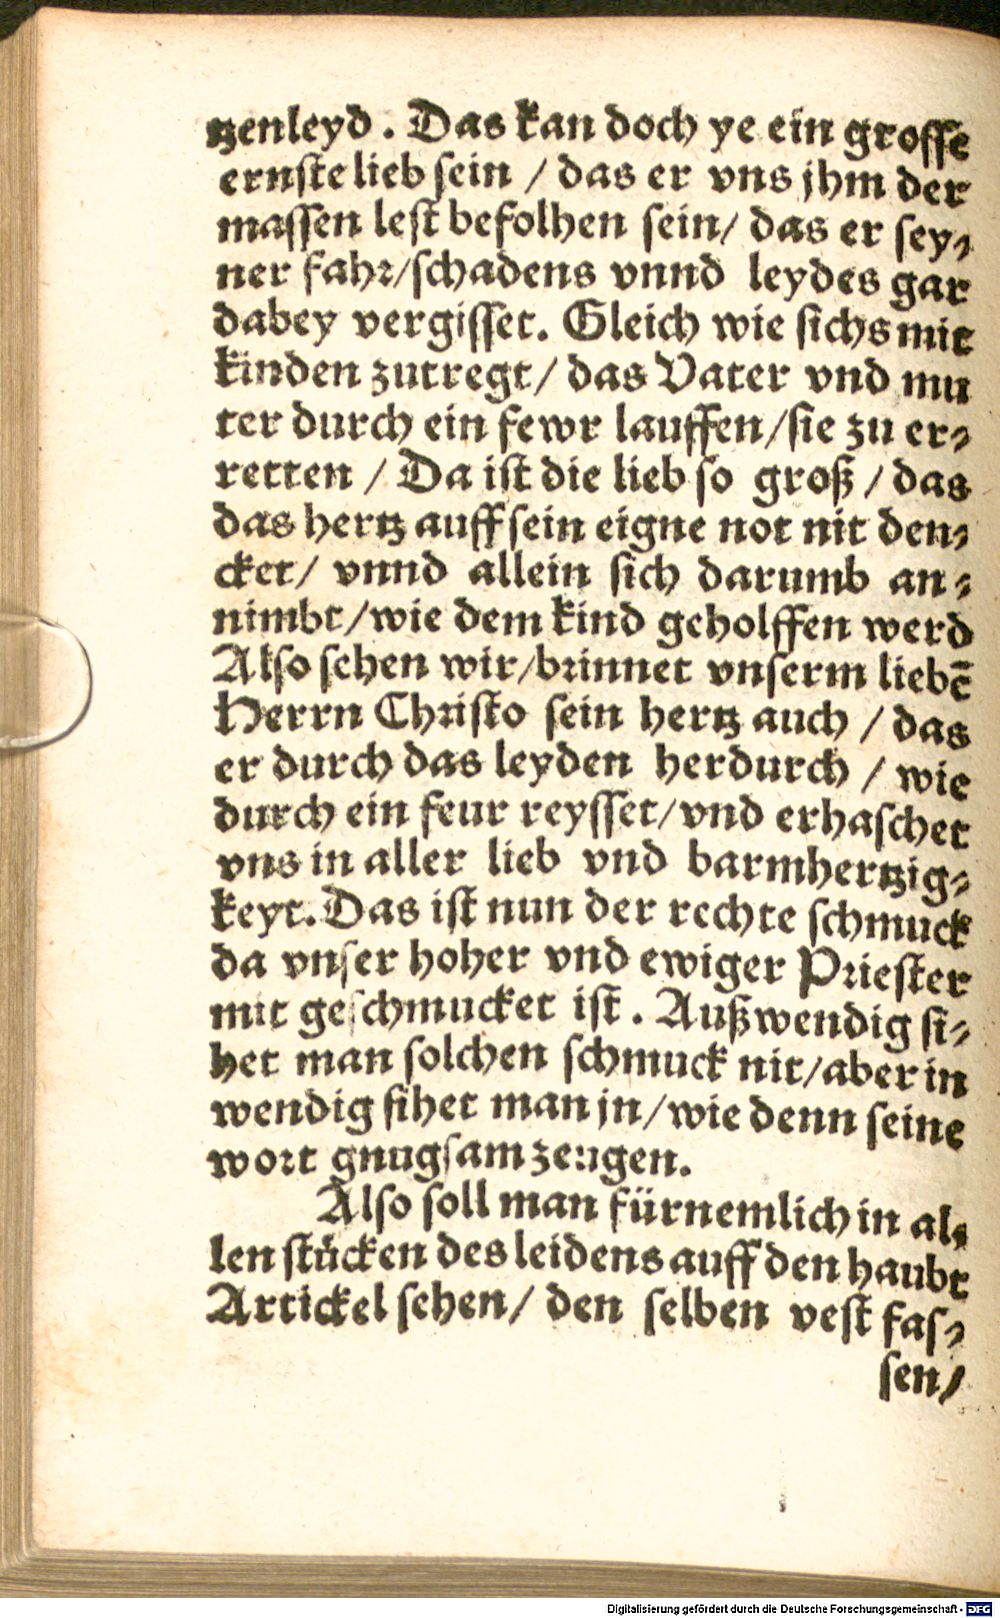 tzenleyd. Das kan doch ye ein grosse
ernste lieb sein / das er vns jhm der
massen lest befolhen sein/ das er sey⸗
ner fahr/schadens vnnd leydes gar
dabey vergisset. Gleich wie sichs mit
kinden zutregt/ das Vater vnd mu
ter durch ein fewr lauffen/sie zu er⸗
retten / Da ist die lieb so groß / das
das hertz auff sein eigne not nit den⸗
cket/ vnnd allein sich darumb an⸗
nimbt/wie dem kind geholffen werd
Also sehen wir/brinnet vnserm liebē
Herrn Christo sein hertz auch / das
er durch das leyden herdurch / wie
durch ein feur reysset/vnd erhaschet
vns in aller lieb vnd barmhertzig⸗
keyt. Das ist nun der rechte schmuck
da vnser hoher vnd ewiger Priester
mit geschmucket ist. Außwendig si⸗
het man solchen schmuck nit/aber in
wendig sihet man jn/wie denn seine
wort gnugsam zeugen.
Also soll man fürnemlich in al⸗
len stücken des leidens auff den haubt
Artickel sehen/ den selben vest fas⸗
sen/
Digitalisierung gefördert durch die Deutsche Forschungsgemeinschaft - DFG